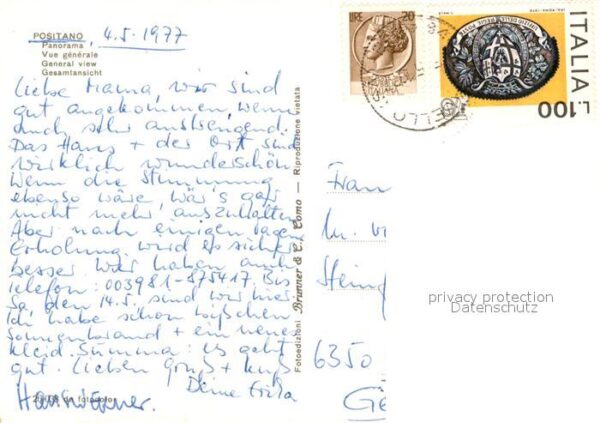 POSITANO, 4.5.1977
Panorama
Vue générale
General view
Gesamtansicht
Liebe Mama, wir sind
gut angekommen, wenn
auch sehr anstrengend.
Das Haus + der Ort sind
wirklich wunderschön
Wenn die Stimmung
ebenso wäre, wär's gar
nicht mehr auszuhalten.
Aber nach einigen Tagen
Erholung wird es sicher
besser. Wir haben auch
Telefon: 003981-875417. Bis
Sa, den 14.5. sind wir hier.
Ich habe schon bißchen
Sonnenbrand + ein neues
Kleid. Summa: es geht
gut. Lieben Gruß + Kuß
Deine
Fotoedizioni Brunner & C. Como — Riproduzione vietata
LIRE 20
ITALIANA
ITALIA L.100
Frau
Stein
6350
privacy protection
Datenschutz